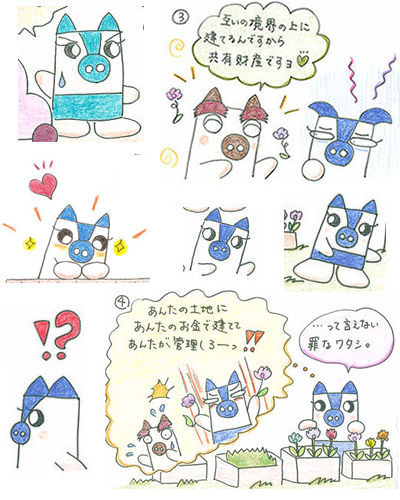 ③
互いの境界の上に
建てるんですから
共有財産ですヨ
!?
④
あんたの土地に
あんたのお金で建てて
あんたが管理しろーっ!!
…って言えない
罪なワタシ。